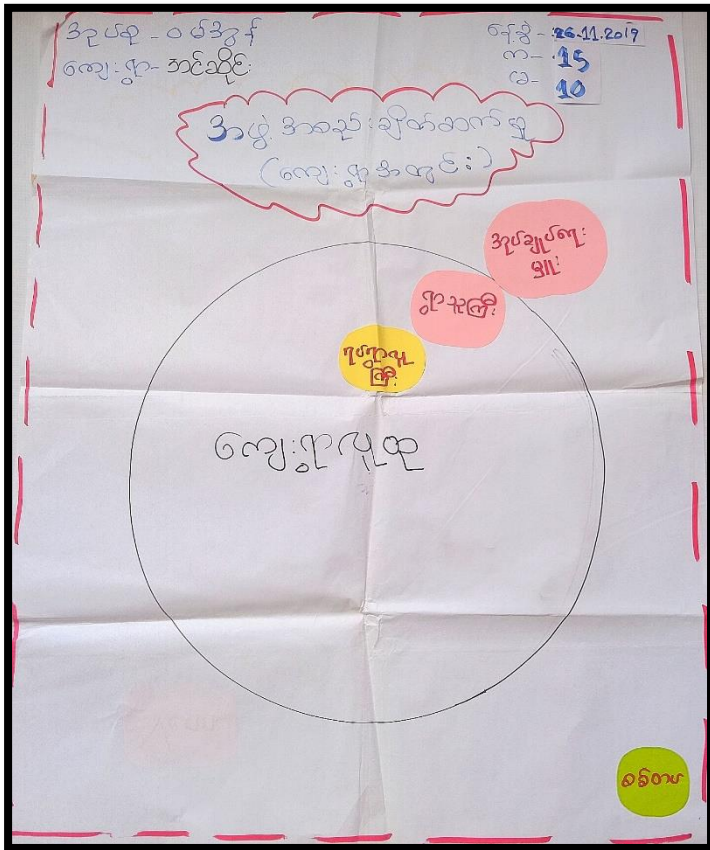 အုပ်စု - ဝမ်အွန်
ကျေးရွာ - အင်ဆိုင်း
နေ့စွဲ - 26.11.2019
ကျ - 15
မ - 10
အဖွဲ့အစည်းချိတ်ဆက်မှု
(ကျေးရွာအတွင်း)
အုပ်ချုပ်ရေး
မှူး
ရွာသူကြီး
ရပ်ရွာလူ
ကြီး
ကျေးရွာလူထု
စစ်တပ်